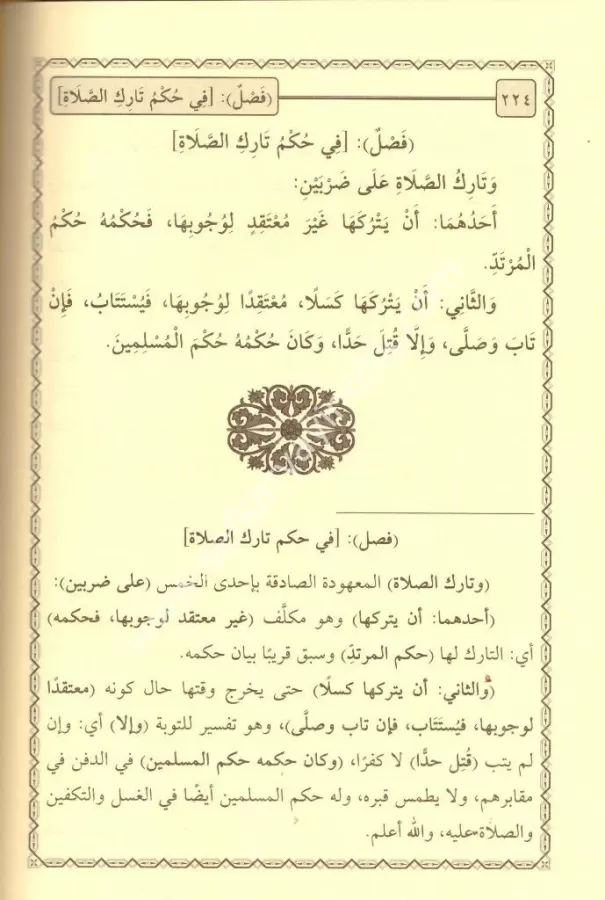 ٢٢٤
(فَصْلٌ): [فِي حُكْمُ تَارِكِ الصَّلَاةِ]
(فَصْلٌ): [فِي حُكْمُ تَارِكِ الصَّلَاةِ]
وَتَارِكُ الصَّلَاةِ عَلَى ضَرْبَيْنِ:
أَحَدُهُمَا: أَنْ يَتْرُكَهَا غَيْرَ مُعْتَقِدٍ لِوُجُوبِهَا، فَحُكْمُهُ حُكْمُ
الْمُرْتَدِّ.
وَالثَّانِي: أَنْ يَتْرُكَهَا كَسَلًا، مُعْتَقِدًا لِوُجُوبِهَا، فَيُسْتَتَابُ، فَإِنْ
تَابَ وَصَلَّى، وَإِلَّا قُتِلَ حَدًّا، وَكَانَ حُكْمُهُ حُكْمَ الْمُسْلِمِينَ.
(فصل): [في حكم تارك الصلاة]
(وتارك الصلاة) المعهودة الصادقة بإحدى الخمس (على ضربين):
(أحدهما: أن يتركها) وهو مكلَّف (غير معتقد لوجوبها، فحكمه)
أي: التارك لها (حكم المرتدِّ) وسبق قريبًا بيان حكمه.
(والثاني: أن يتركها كسلًا) حتى يخرج وقتها حال كونه (معتقدًا
لوجوبها، فيُستَتَاب، فإن تاب وصلَّى)، وهو تفسير للتوبة (وإلا) أي: وإن
لم يتب (قُتِل حدًّا) لا كفرًا، (وكان حكمه حكم المسلمين) في الدفن في
مقابرهم، ولا يطمس قبره، وله حكم المسلمين أيضًا في الغسل والتكفين
والصلاة عليه، والله أعلم.